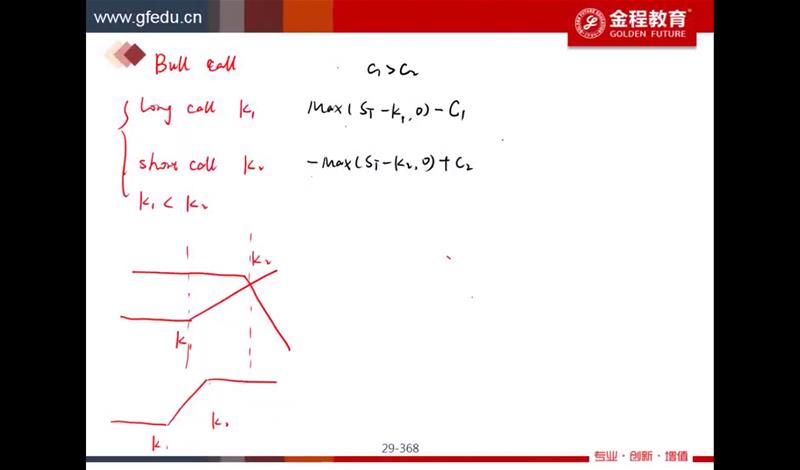 www.gfedu.cn
金程教育
GOLDEN FUTURE
Bull call
C₁>C₂
Long call K₁ Max(Sₜ-K₁,0)-C₁
short call K₂ -Max(Sₜ-K₂,0)+C₂
K₁<K₂
K₂
K₁
K₂
K₁
29-368
专业·创新·增值